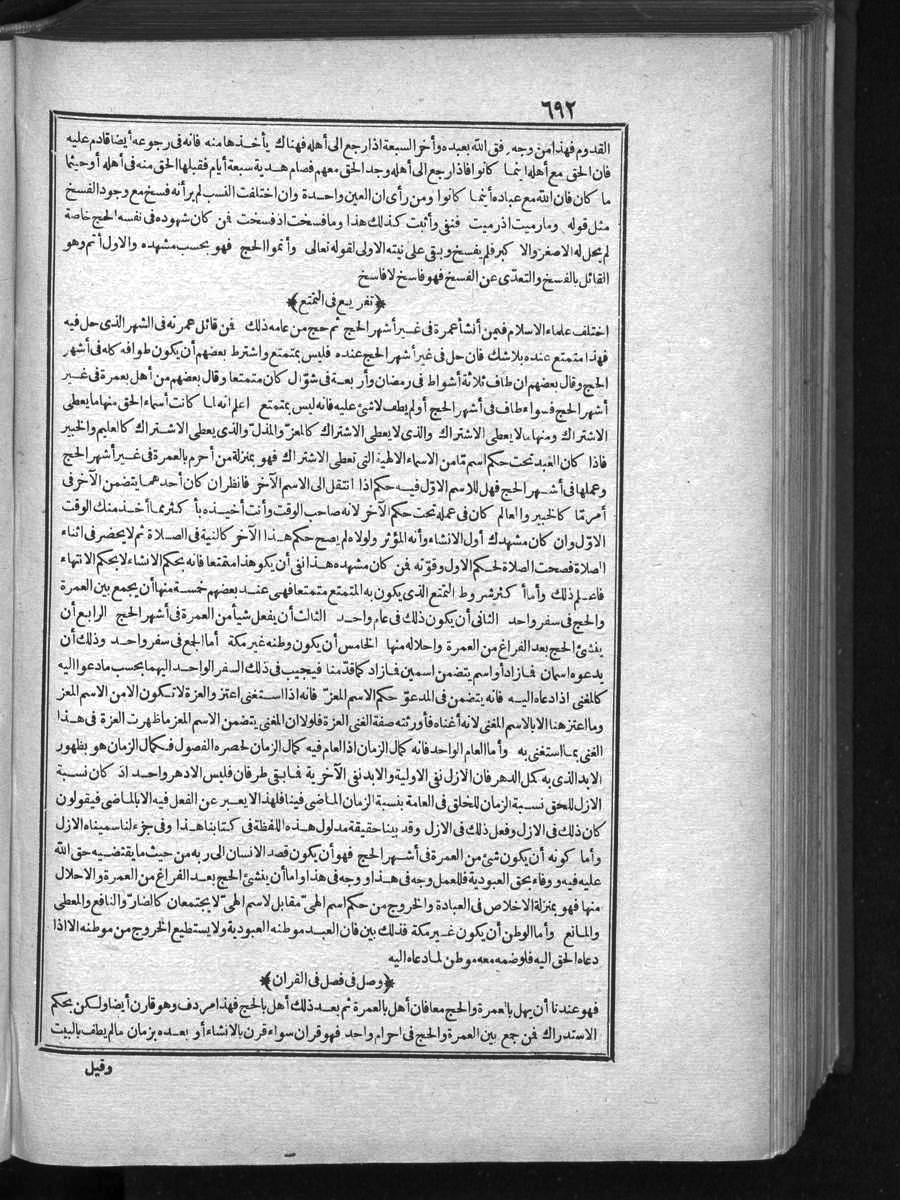 ٦٩٢
القدوم فهذا من وجه رفق الله بعبده وأخر السبعة اذا رجع الى أهله فهناك يأخذها منه فانه فى رجوعه أيضا قادم عليه
فان الحق مع أهله اينما كانوا فاذا رجع الى أهله وجد الحق معهم فصام هدية سبعة أيام فقبلها الحق منه فى أهله أوحيثما
ما كان فان الله مع عباده أينما كانوا ومن رأى ان العين واحدة وان اختلفت النسب لم ير أنه فسخ مع وجود الفسخ
مثل قوله وما رميت اذ رميت فنفى وأثبت كذلك هذا وما فسخت اذ فسخت فمن كان شهوده فى نفسه الحج خاصة
لم يحل له الاصغر والا كبر فلم يفسخ وبقى على نيته الاولى لقوله تعالى وأتموا الحج فهو بحسب مشهده والاول أتم وهو
القائل بالفسخ والتعدّى عن الفسخ فهو فاسخ لا فاسخ
﴿تفريع فى التمتع﴾
اختلف علماء الاسلام فيمن أنشأ عمرة فى غير أشهر الحج ثم حج من عامه ذلك فمن قائل عمرته فى الشهر الذى حل فيه
فهذا متمتع عنده بلاشك فان حل فى غير أشهر الحج عنده فليس بمتمتع واشترط بعضهم أن يكون طوافه كله فى أشهر
الحج وقال بعضهم ان طاف ثلاثة أشواط فى رمضان وأربعة فى شوّال كان متمتعا وقال بعضهم من أهل بعمرة فى غير
أشهر الحج فسواء طاف فى أشهر الحج أولم يطف لا شئ عليه فانه ليس بمتمتع اعلم انه لما كانت أسماء الحق منها ما يعطى
الاشتراك ومنها ما لا يعطى الاشتراك والذى لا يعطى الاشتراك كالمعزّ والمذلّ والذى يعطى الاشتراك كالعليم والخبير
فاذا كان العبد تحت حكم اسم مّا من الاسماء الالهية التى تعطى الاشتراك فهو بمنزلة من أحرم بالعمرة فى غير أشهر الحج
وعملها فى أشهر الحج فهل للاسم الاوّل فيه حكم اذا انتقل الى الاسم الآخر فانظر ان كان أحدهما يتضمن الآخر فى
أمر مّا كالخبير والعالم كان فى عمله تحت حكم الآخر لانه صاحب الوقت وأنت أخيذه بأكثر مما أخذ منك الوقت
الاوّل وان كان مشهدك أول الانشاء وأنه المؤثر ولولاه لم يصح حكم هذا الآخر كالنية فى الصلاة ثم لا يحضر فى اثناء
الصلاة فصحت الصلاة لحكم الاول وقوّته فمن كان مشهده هذا نفى أن يكو هذا متمتعا فانه بحكم الانشاء لا بحكم الانتهاء
فاعلم ذلك وأما أكثر شروط التمتع الذى يكون به المتمتع متمتعا فهى عند بعضهم خمسة منها أن يجمع بين العمرة
والحج فى سفر واحد الثانى أن يكون ذلك فى عام واحد الثالث أن يفعل شيأ من العمرة فى أشهر الحج الرابع أن
ينشئ الحج بعد الفراغ من العمرة واحلاله منها الخامس أن يكون وطنه غير مكة أما الجمع فى سفر واحد وذلك أن
يدعوه اسمان فازاد أو اسم يتضمن اسمين فازاد كما قدّمنا فيجيب فى ذلك السفر الواحد اليهما بحسب مادعوا اليه
كالمغنى اذا دعاه اليه فانه يتضمن فى المدعوّ حكم الاسم المعزّ فانه اذا استغنى اعتز والعزة لا تكون الا من الاسم المعز
وما اعتز هنا الا بالاسم المغنى لانه أغناه فأورثته صفة الغنى العزة فلولا ان المغنى يتضمن الاسم المعز ما ظهرت العزة فى هذا
الغنى بما استغنى به وأما العام الواحد فانه كمال الزمان اذ العام فيه كمال الزمان لحصره الفصول فكمال الزمان هو بظهور
الابد الذى به كمل الدهر فان الازل نفى الاولية والابد نفى الآخرية فما بقى طرفان فليس الا دهر واحد اذ كان نسبة
الازل للحق نسبة الزمان للخلق فى العامة بنسبة الزمان الماضى فينا فلهذا لا يعبر عن الفعل فيه الا بالماضى فيقولون
كان ذلك فى الازل وفعل ذلك فى الازل وقد بينا حقيقة مدلول هذه اللفظة فى كتابنا هذا وفى جزء لنا سميناه الازل
وأما كونه أن يكون شئ من العمرة فى أشهر الحج فهو أن يكون قصد الانسان الى ربه من حيث ما يقتضيه حق الله
عليه فيه ووفاء بحق العبودية فللعمل وجه فى هذا ووجه فى هذا واما أن ينشئ الحج بعد الفراغ من العمرة والاحلال
منها فهو بمنزلة الاخلاص فى العبادة والخروج من حكم اسم الهىّ مقابل لاسم الهىّ لا يجتمعان كالضارّ والنافع والمعطى
والمانع وأما الوطن أن يكون غير مكة فذلك بين فان العبد موطنه العبودية ولا يستطيع الخروج من موطنه الا اذا
دعاه الحق اليه فلو ضمه معه موطن لما دعاه اليه
﴿وصل فى فصل فى القران﴾
فهو عندنا أن يهل بالعمرة والحج معا فان أهل بالعمرة ثم بعد ذلك أهل بالحج فهذا مردف وهو قارن أيضا ولكن بحكم
الاستدراك فمن جمع بين العمرة والحج فى احرام واحد فهو قران سواء قرن بالانشاء أو بعده بزمان مالم يطف بالبيت
وقيل